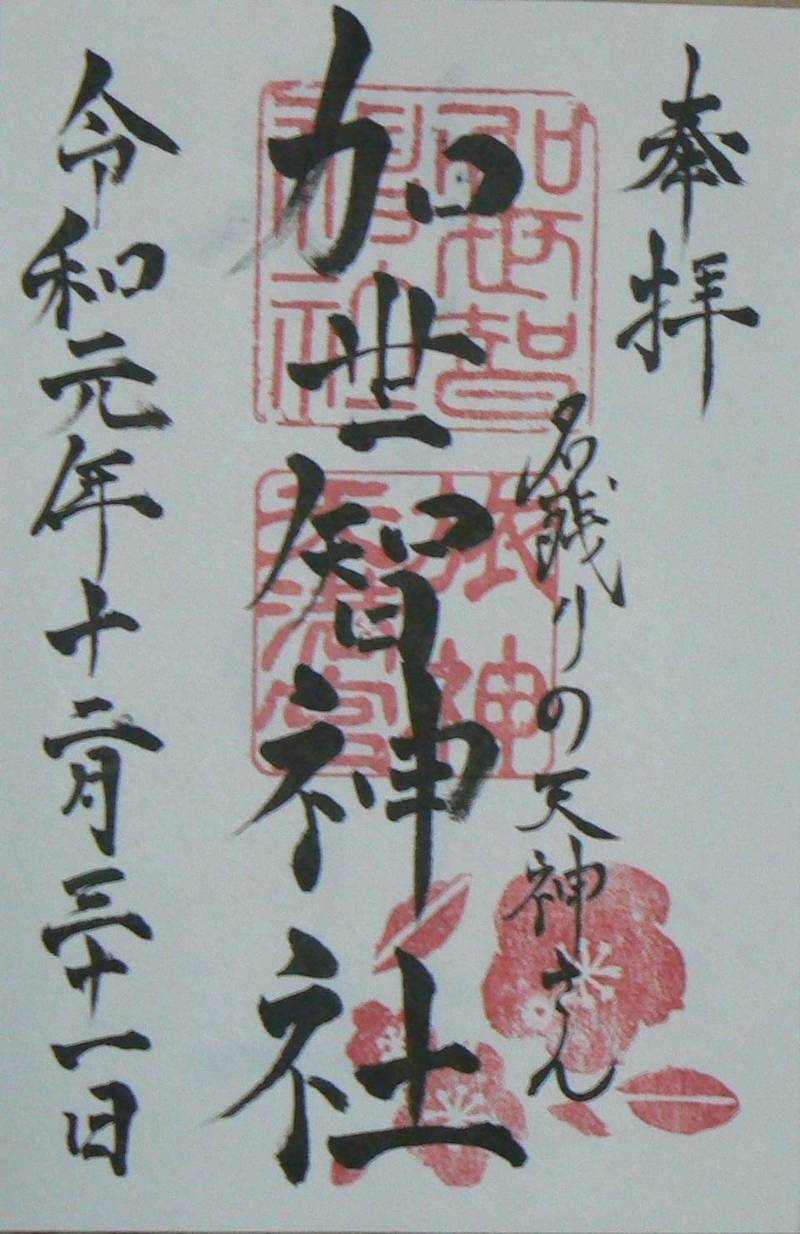 奉拝
名残りの天神さん
加世智神社
加世智神社
振神天満宮
令和元年十二月三十一日